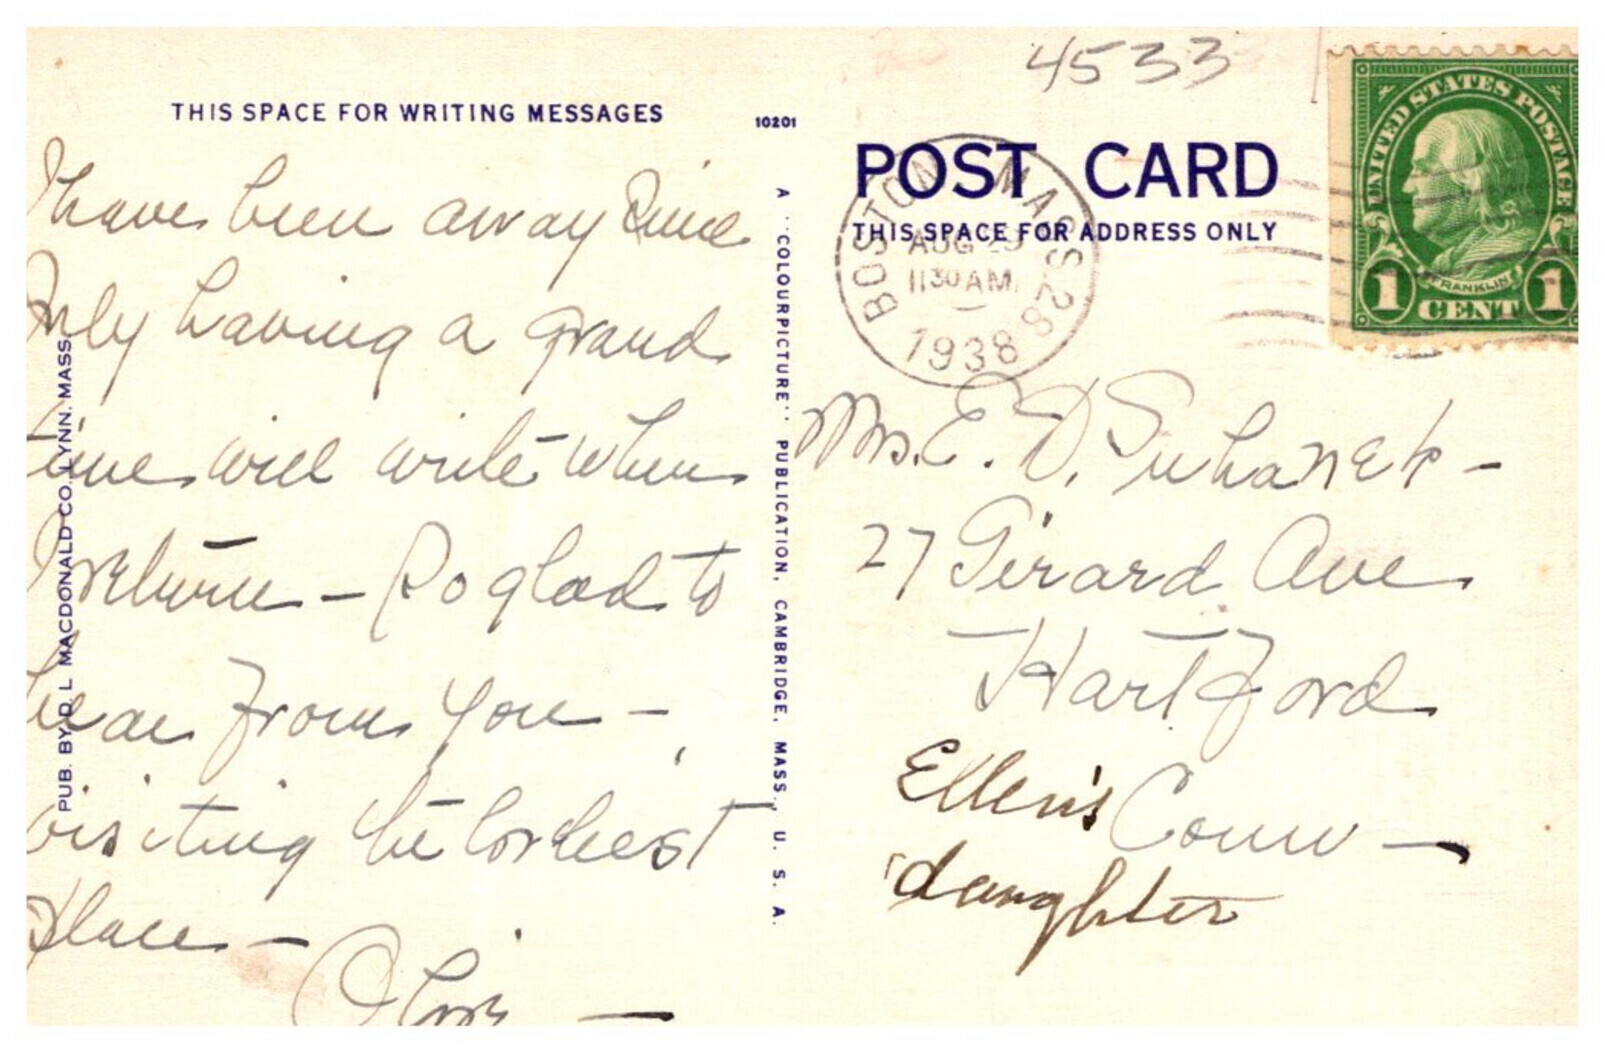 4533
THIS SPACE FOR WRITING MESSAGES
10201
POST CARD
THIS SPACE FOR ADDRESS ONLY
BOSTON MASS 28
AUG 29
1130 AM
1938
UNITED STATES POSTAGE
FRANKLIN
1 CENT 1
I have been away Since
July having a grand
time will write when
I return – So glad to
hear from you –
visiting the lovliest
place –
Olive –
PUB. BY D. L. MACDONALD CO. LYNN. MASS.
A "COLOURPICTURE" PUBLICATION, CAMBRIDGE, MASS., U. S. A.
Mrs. E. D. Suhanek –
27 Girard Ave
Hartford
Conn –
Ellen's
daughter